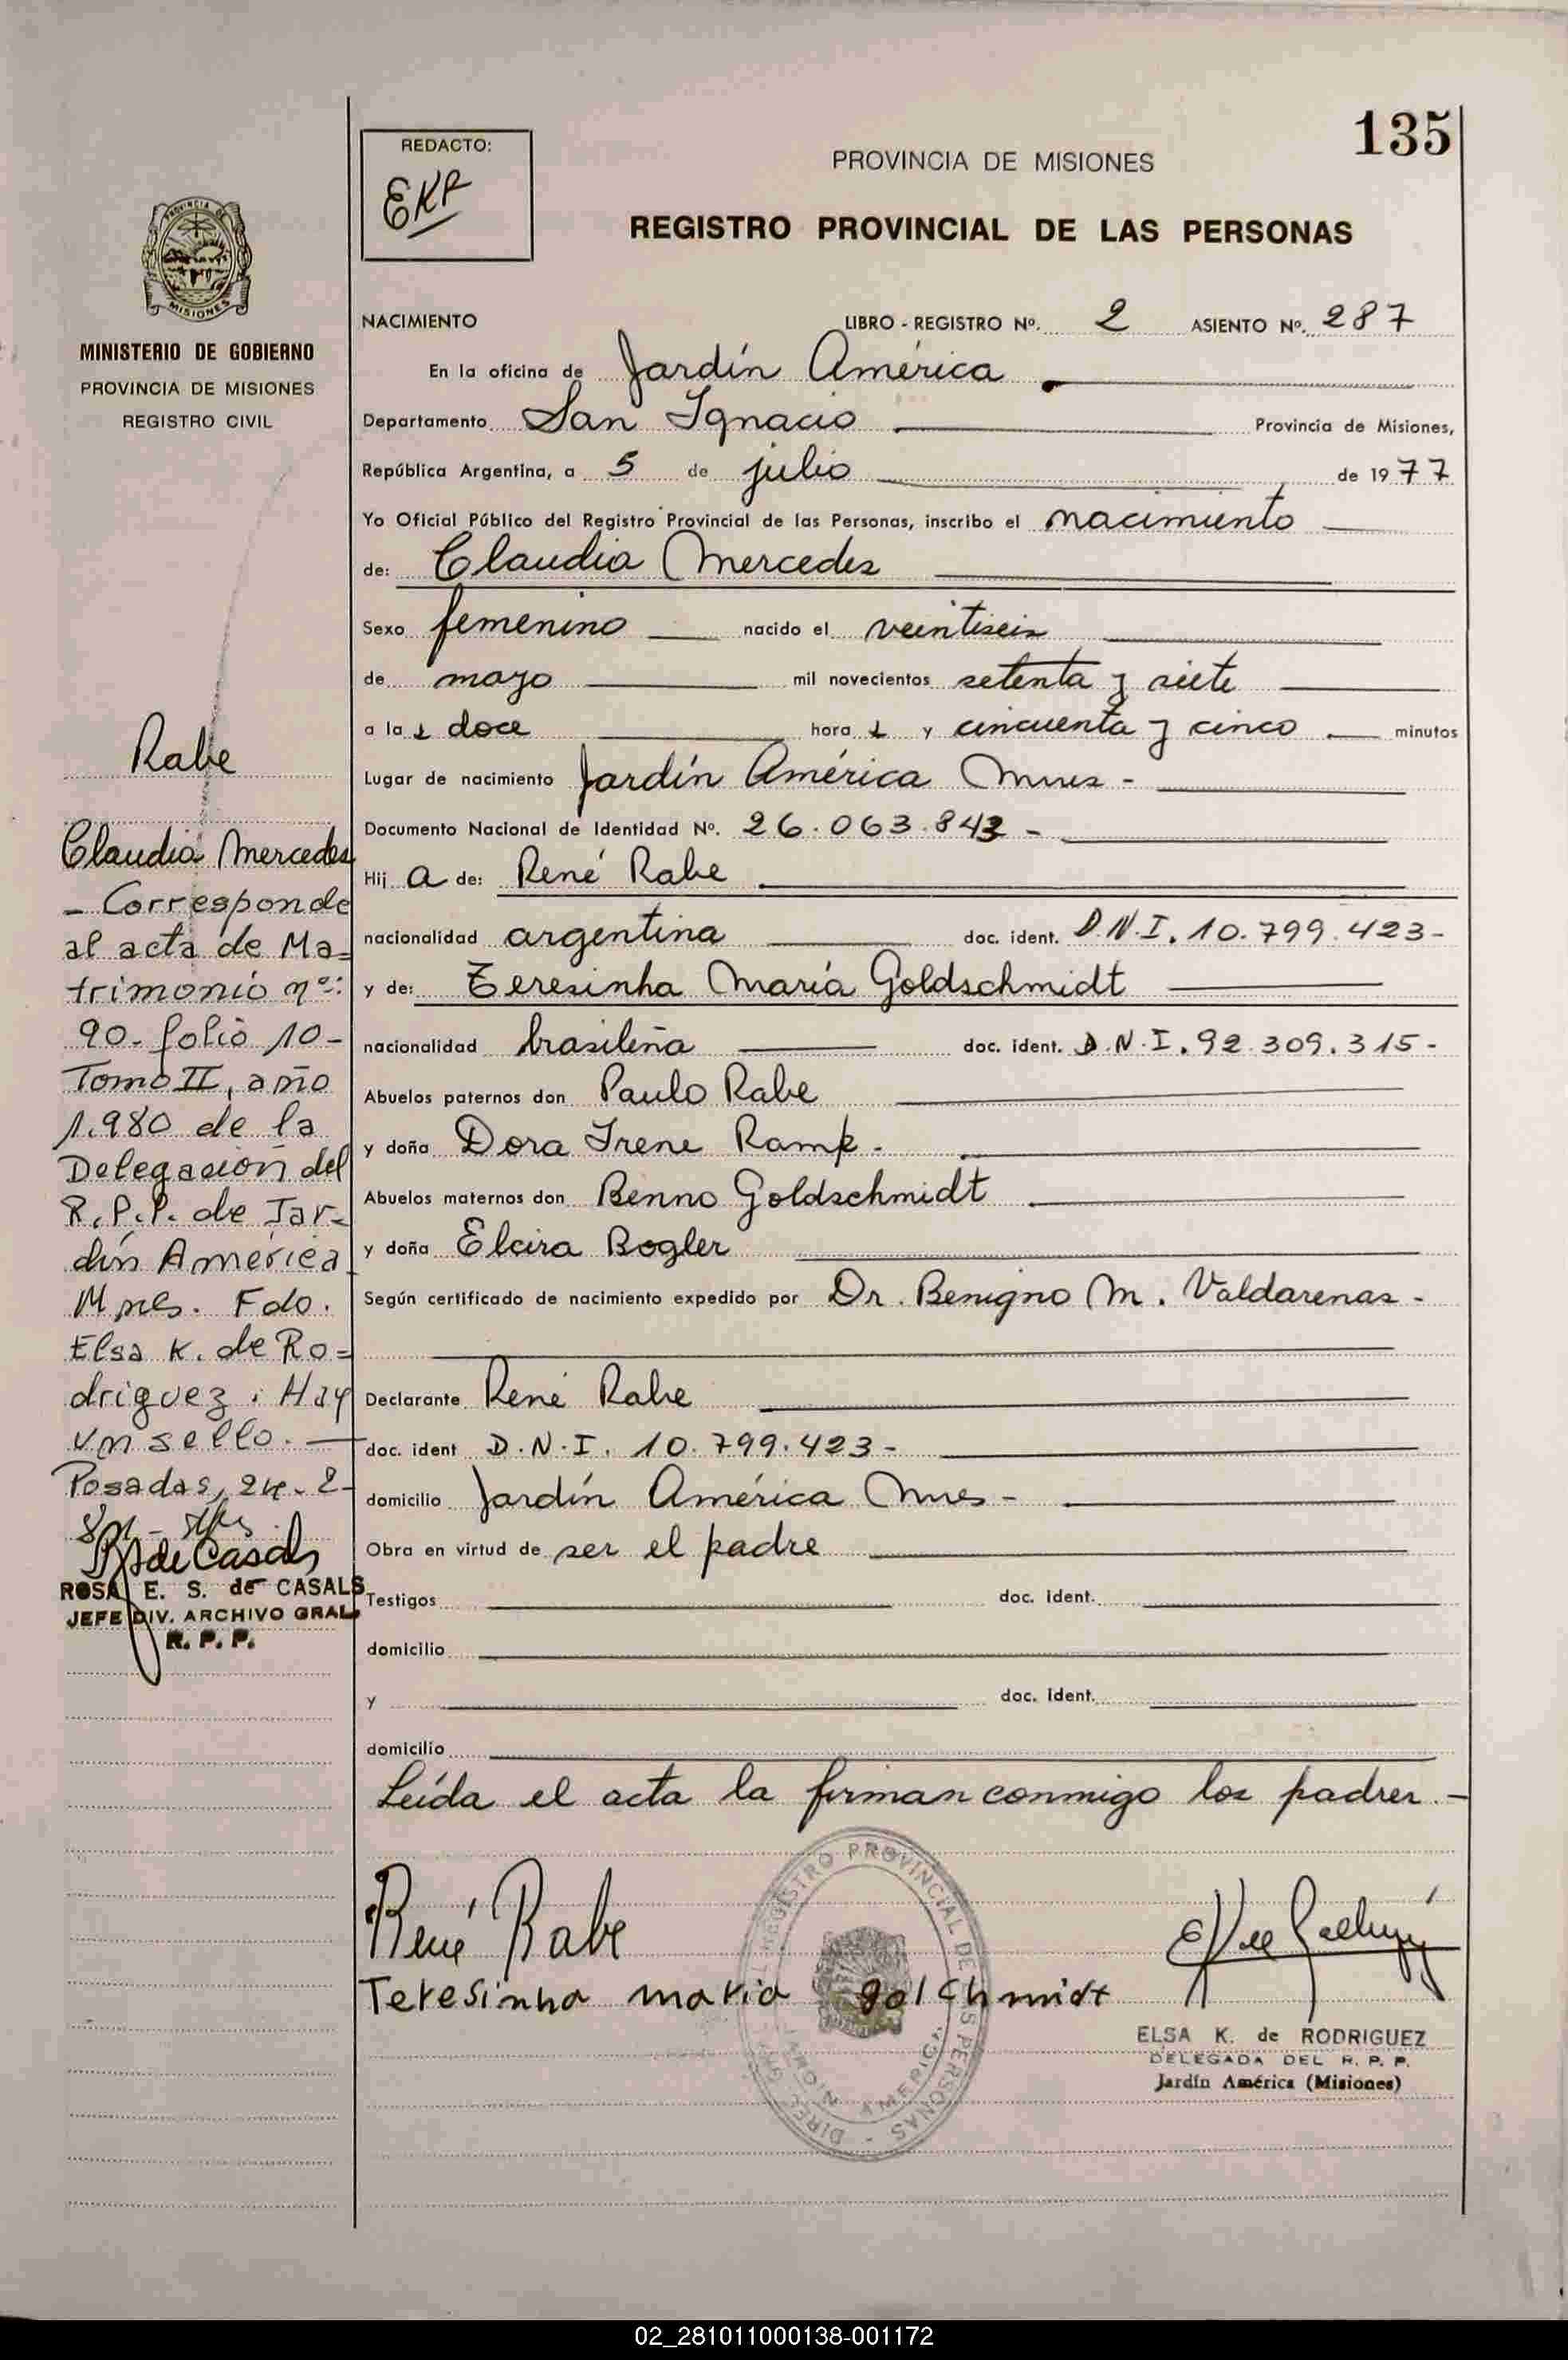 135
REDACTO:
EKR
PROVINCIA DE MISIONES
REGISTRO PROVINCIAL DE LAS PERSONAS
PROVINCIA DE
MISIONES
MINISTERIO DE GOBIERNO
PROVINCIA DE MISIONES
REGISTRO CIVIL
NACIMIENTO LIBRO - REGISTRO Nº. 2 ASIENTO Nº. 287
En la oficina de Jardín América
Departamento San Ignacio Provincia de Misiones,
República Argentina, a 5 de julio de 1977
Yo Oficial Público del Registro Provincial de las Personas, inscribo el nacimiento
de: Claudia Mercedes
Sexo femenino nacido el veintiseis
de mayo mil novecientos setenta y siete
a las doce horas y cincuenta y cinco minutos
Lugar de nacimiento Jardín América Mnes -
Documento Nacional de Identidad Nº. 26.063.843 -
Hija de: René Rabe
nacionalidad argentina doc. ident. D.N.I. 10.799.423-
y de: Teresinha María Goldschmidt
nacionalidad brasileña doc. ident. D.N.I. 92.309.315-
Abuelos paternos don Paulo Rabe
y doña Dora Irene Ramp.-
Abuelos maternos don Benno Goldschmidt
y doña Elcira Bogler
Según certificado de nacimiento expedido por Dr. Benigno M. Valdarenas -
Declarante René Rabe
doc. ident D.N.I. 10.799.423-
domicilio Jardín América Mnes -
Obra en virtud de ser el padre
Testigos doc. ident.
domicilio
y doc. ident.
domicilio
Leída el acta la firman conmigo los padres.-
Rabe
Claudia Mercedes
- Corresponde
al acta de Ma=
trimonio nº:
90- folio 10-
Tomo II, año
1.980 de la
Delegación del
R.P.P. de Jar-
dín América
Mnes. Fdo.
Elsa K. de Ro=
driguez. Hay
un sello.-
Posadas, 24-2-
81-
RS de Casals
ROSA E. S. de CASALS
JEFE DIV. ARCHIVO GRAL.
R. P. P.
René Rabe
Teresinha maria golchmidt
DIREC. GRAL. REGISTRO PROVINCIAL DE LAS PERSONAS -
JARDIN AMERICA
ELSA K. de RODRIGUEZ
DELEGADA DEL R. P. P.
Jardín América (Misiones)
02_281011000138-001172